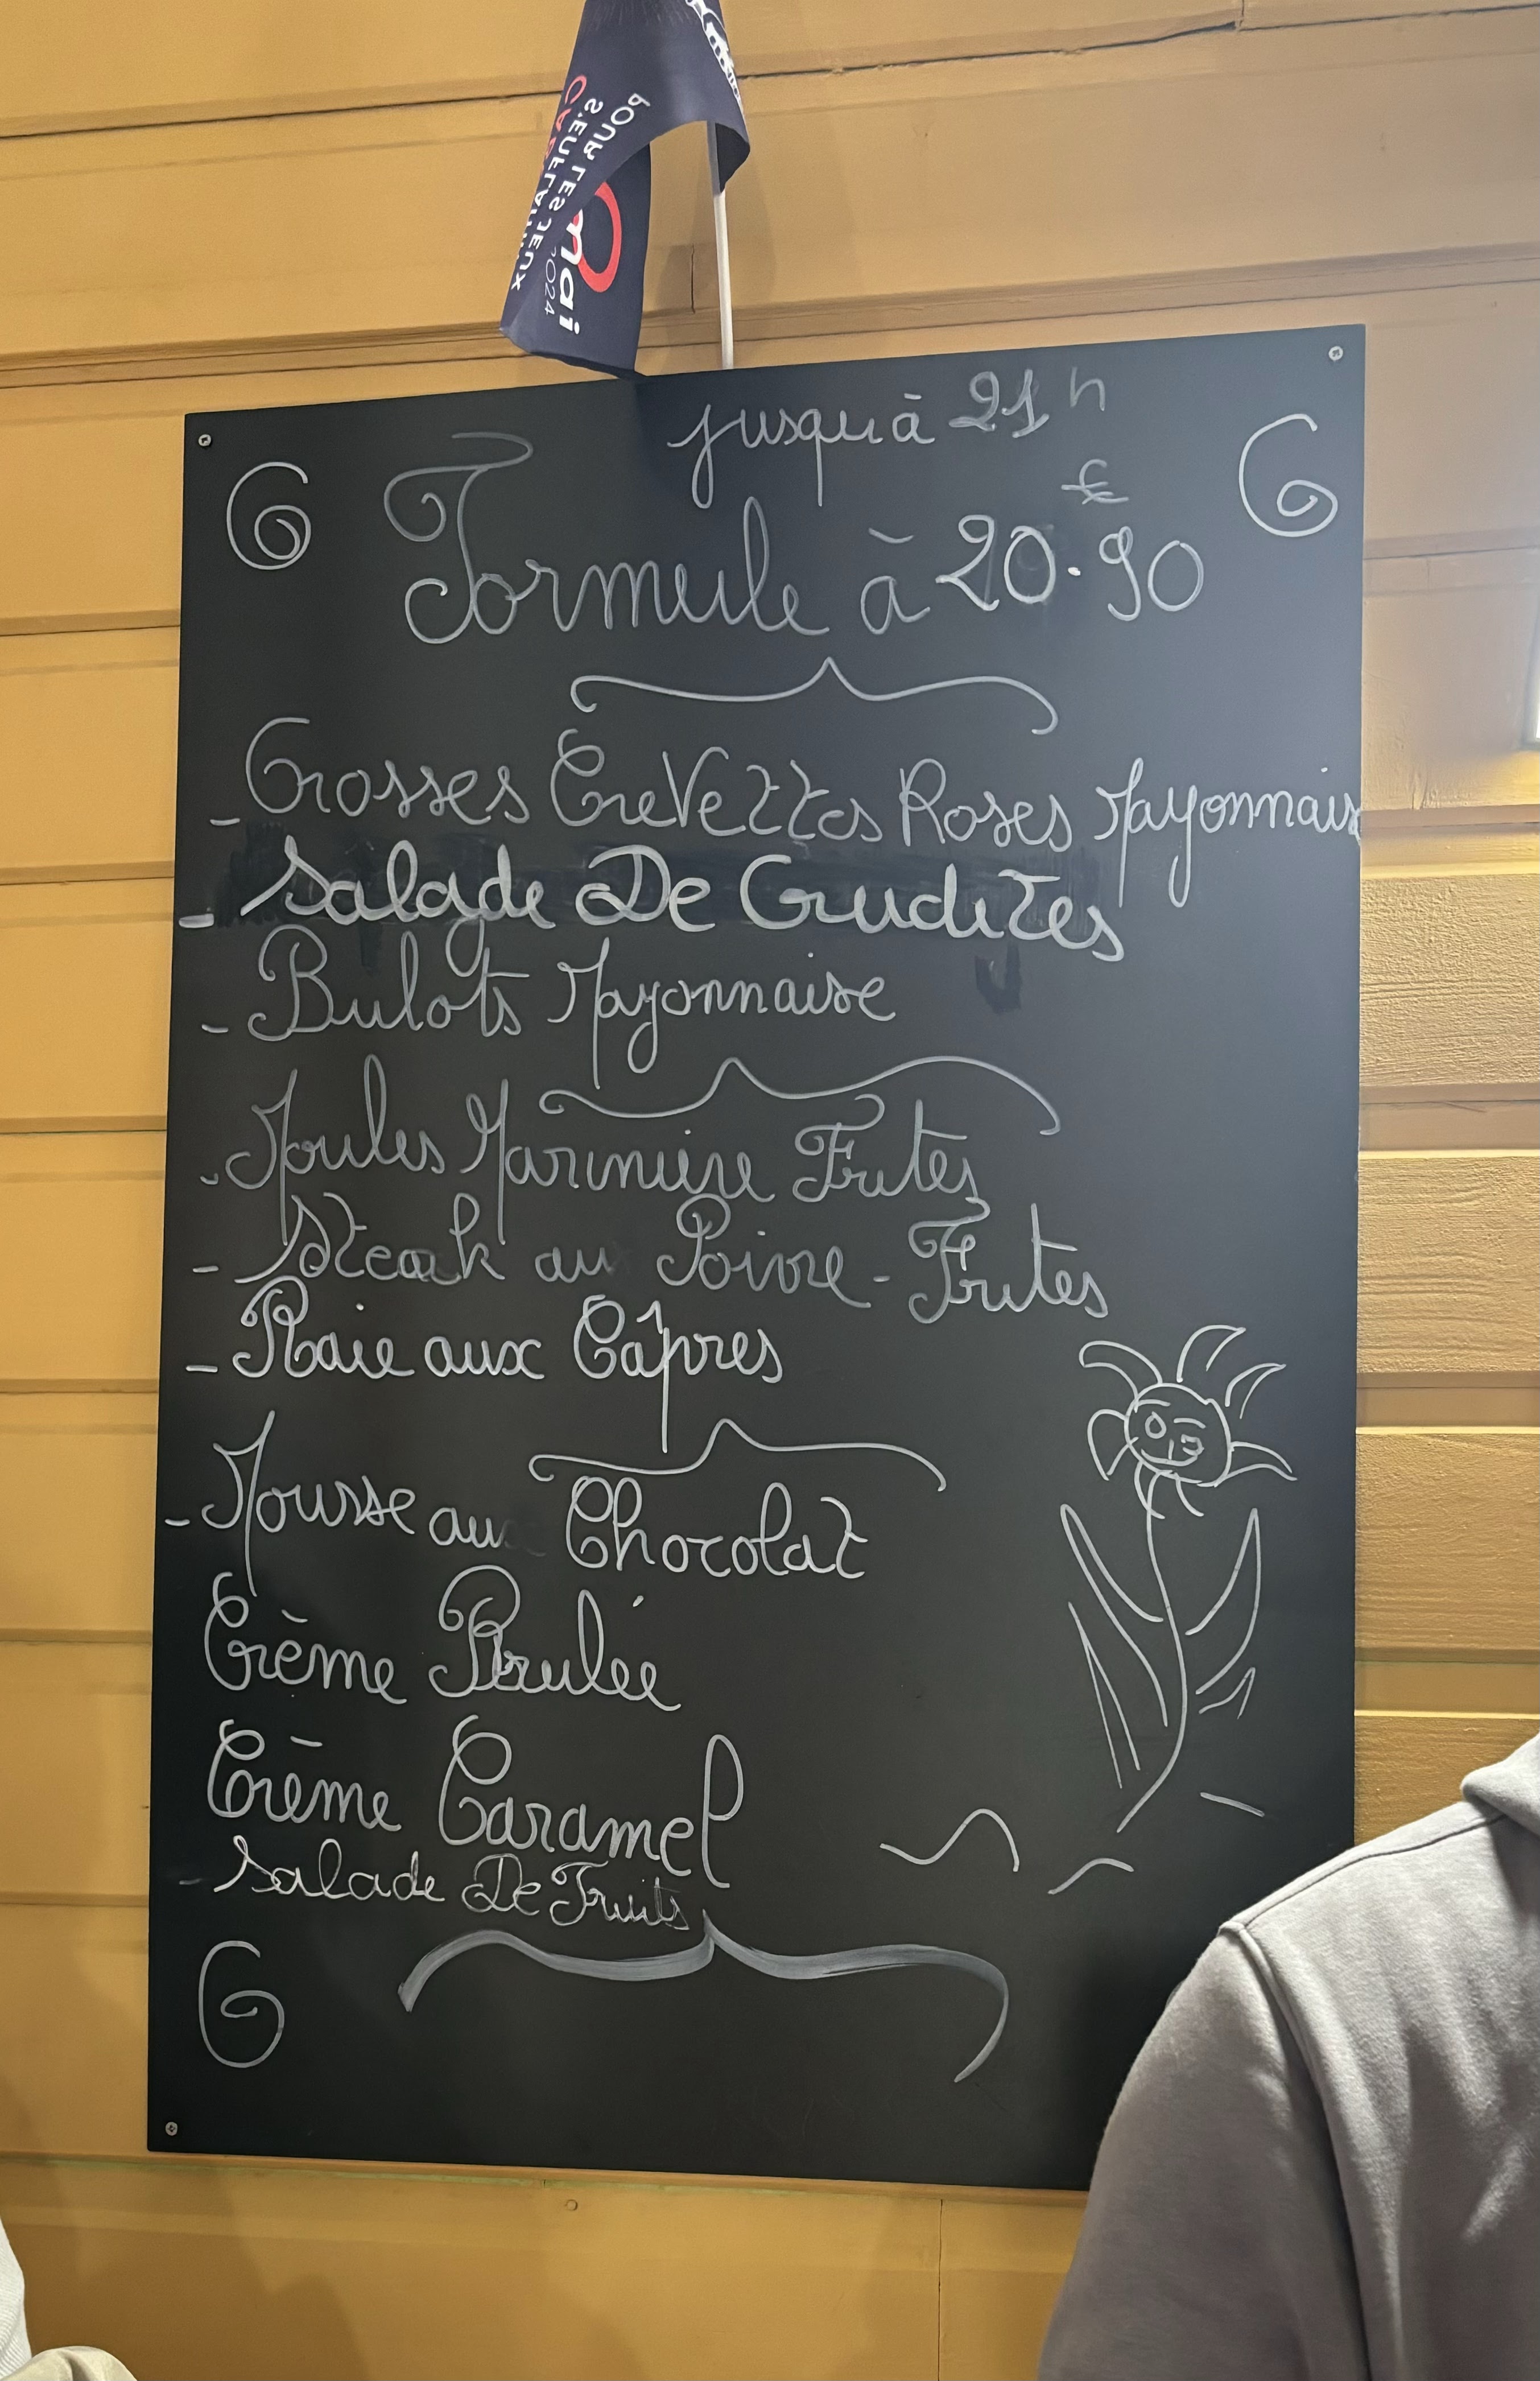 POUR LES JEUX
mai
2024
jusqu'à 21h
Formule à 20.90 €
- Grosses Crevettes Roses Mayonnaise
- Salade De Crudités
- Bulots Mayonnaise
- Moules Marinière Frites
- Steak au Poivre - Frites
- Raie aux Câpres
- Mousse au Chocolat
Crème Brulée
Crème Caramel
- Salade De Fruits